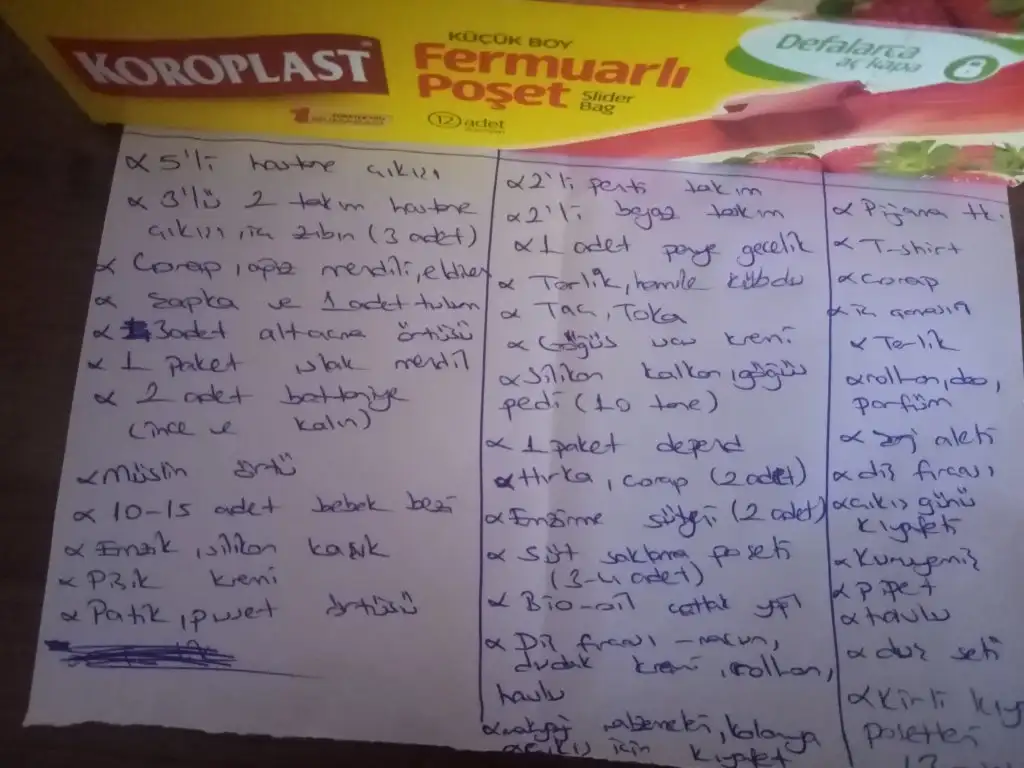 KOROPLAST
KÜÇÜK BOY
Fermuarlı
Poşet
Slider
Bag
12 adet
Defalarca
aç kapa
5'li hastane çıkışı
3'lü 2 takım hastane
çıkışı, iç zıbın (3 adet)
Çorap, ağız mendili, eldiven
Şapka ve 1 adet tulum
3 adet alt açma örtüsü
1 paket ıslak mendil
2 adet battaniye
(ince ve kalın)
Müslin örtü
10-15 adet bebek bezi
Emzik, silikon kaşık
Pişik kremi
Patik, puset örtüsü
2'li penti takım
2'li beyaz takım
1 adet penye gecelik
Terlik, hamile külodu
Taç, Toka
Göğüs ucu kremi
Silikon kalkan, göğüs
pedi (10 tane)
1 paket depend
Hırka, çorap (2 adet)
Emzirme sütyeni (2 adet)
Süt saklama poşeti
(3-4 adet)
Bio-oil çatlak yağı
Diş fırçası - macun,
dudak kremi, rollon,
havlu
malzemeleri, kolonya
çıkış için kıyafet
Pijama tk.
T-shirt
Çorap
iç çamaşırı
Terlik
rollon, deo,
parfüm
şarj aleti
diş fırçası
çıkış günü
kıyafeti
Kuruyemiş
pipet
havlu
duş seti
Kirli
poşetleri